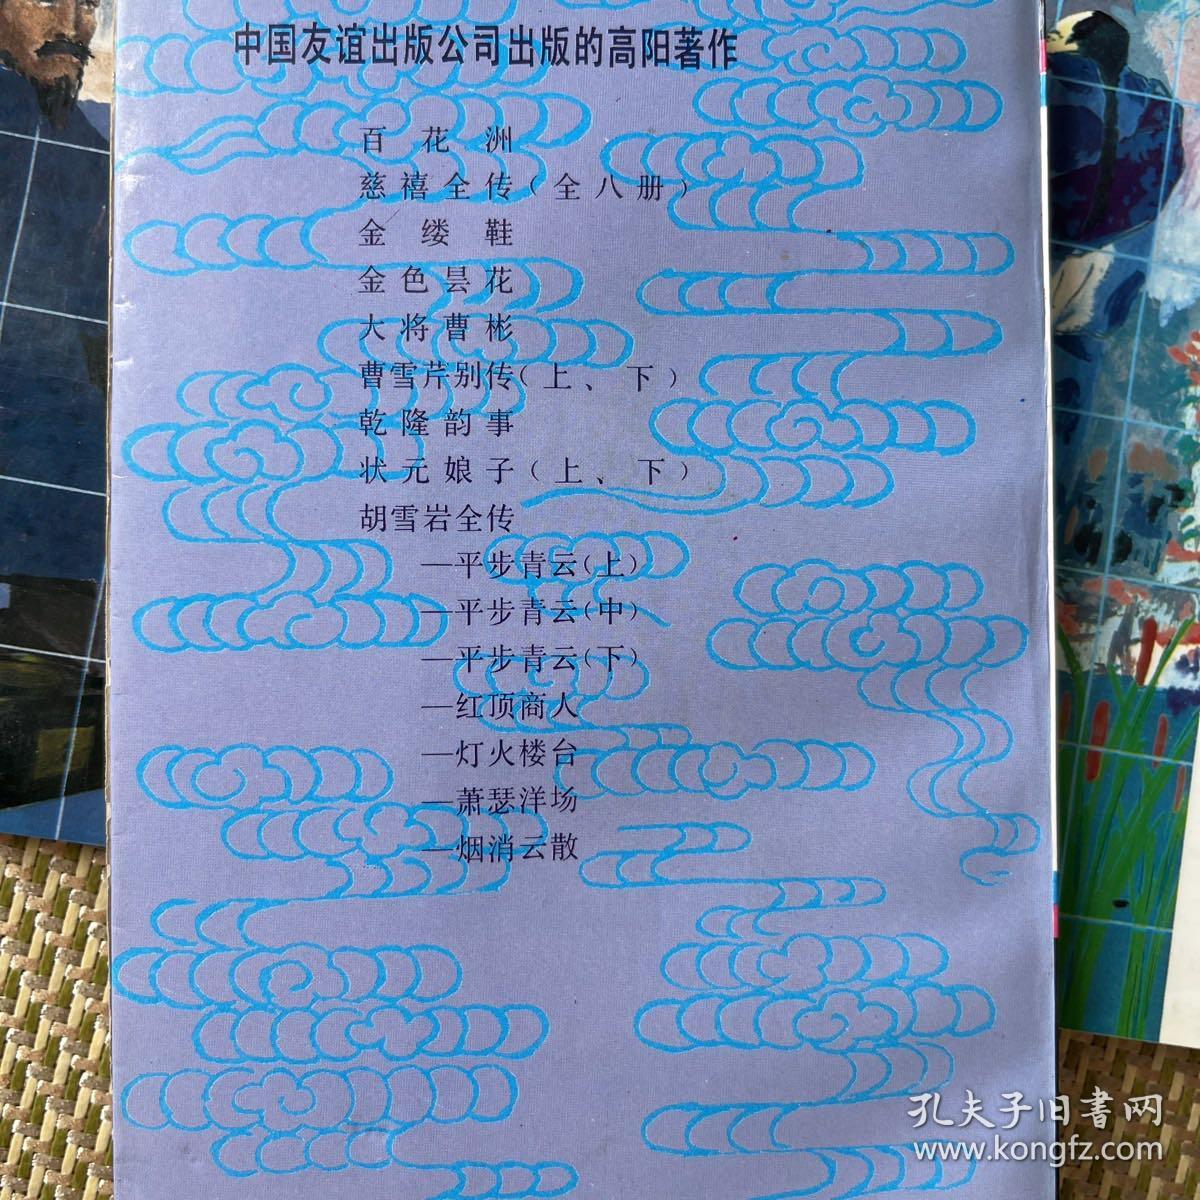 中国友谊出版公司出版的高阳著作
百花洲
慈禧全传(全八册)
金缕鞋
金色昙花
大将曹彬
曹雪芹别传(上、下)
乾隆韵事
状元娘子(上、下)
胡雪岩全传
—平步青云(上)
—平步青云(中)
—平步青云(下)
—红顶商人
—灯火楼台
—萧瑟洋场
—烟消云散
孔夫子旧書网
www.kongfz.com